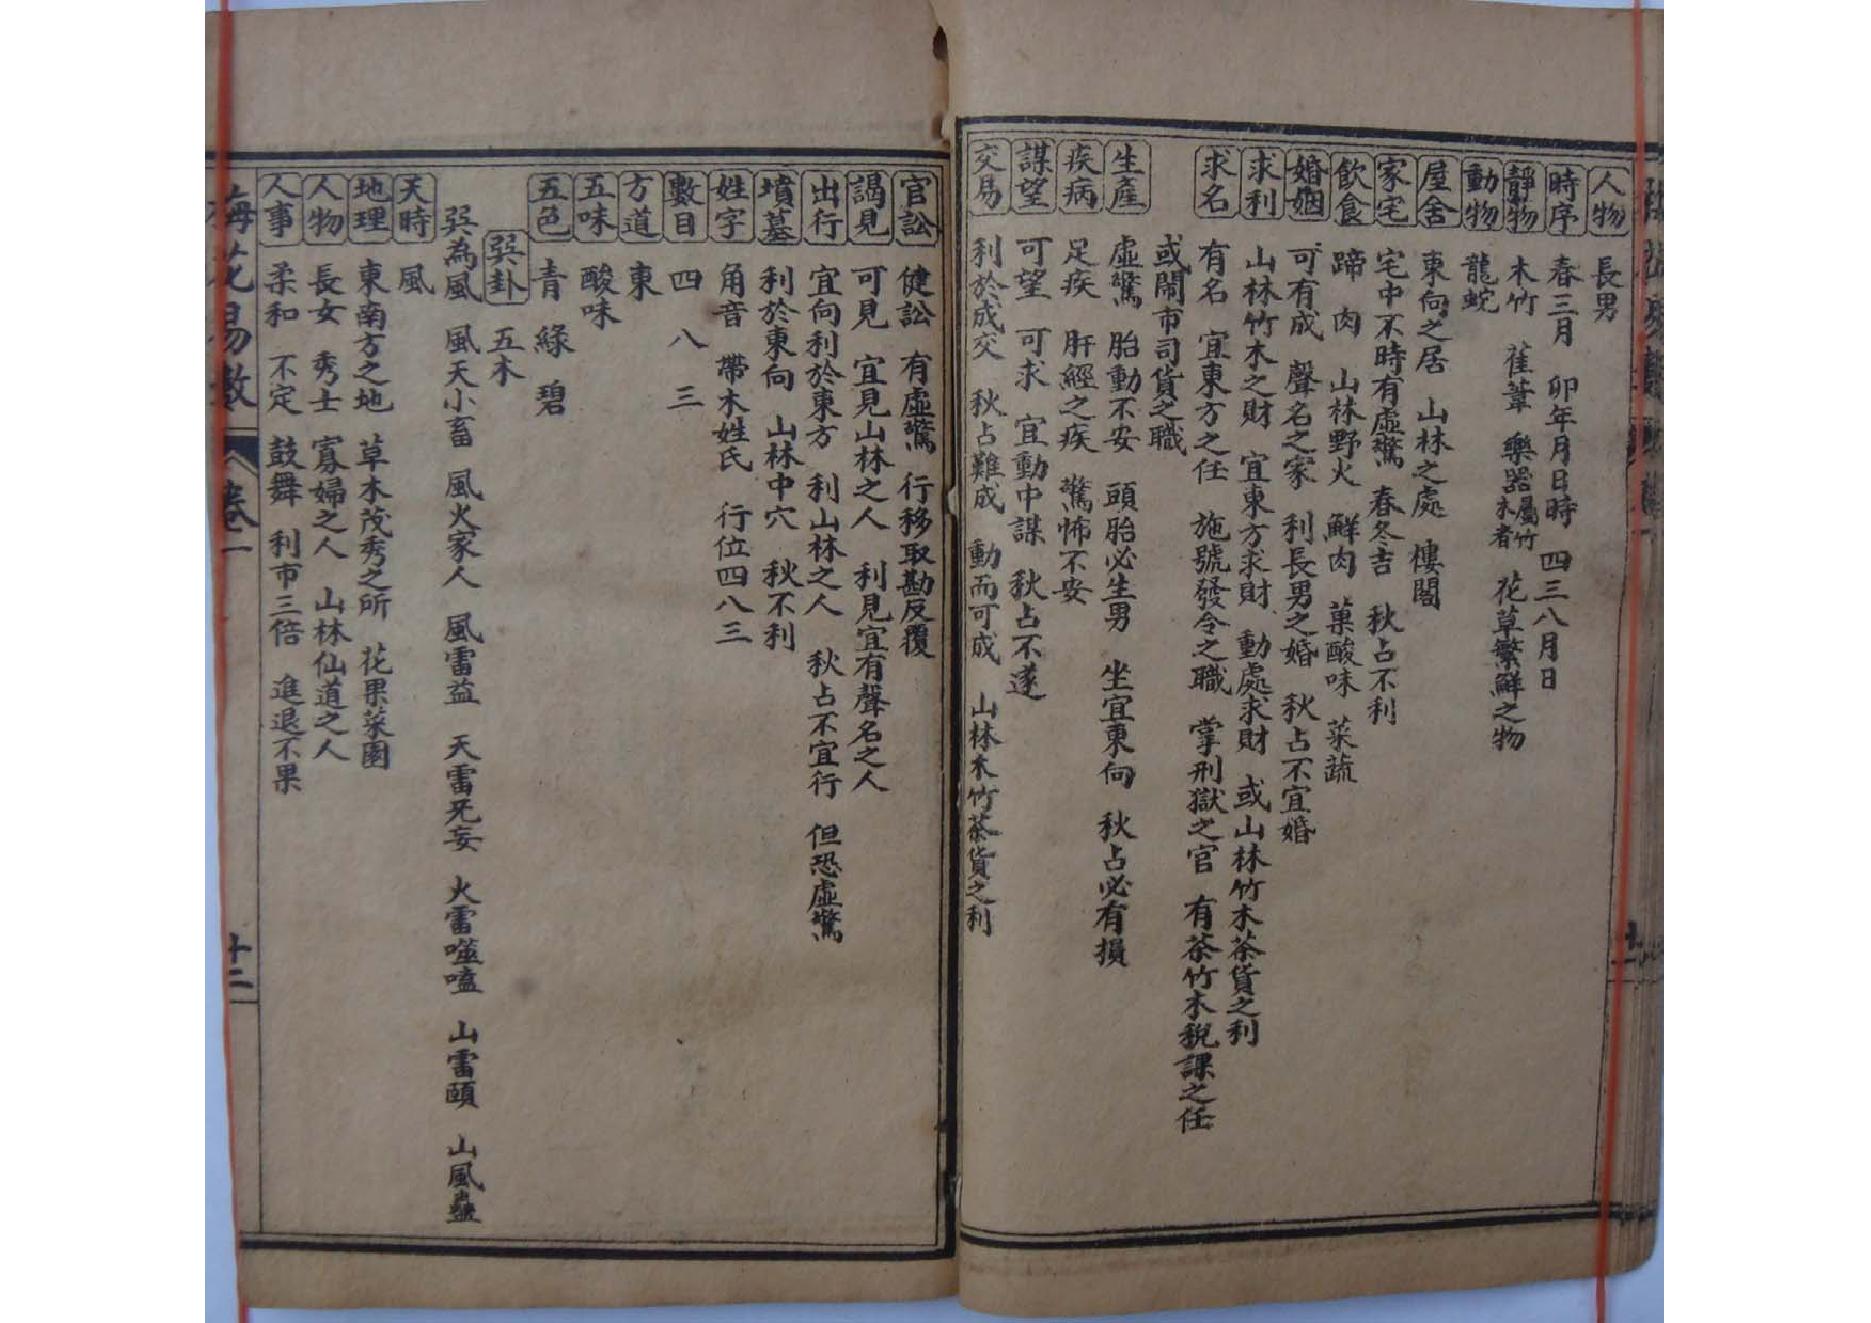 人物 長男
時序 春三月 卯年月日時 四三八月日
靜物 木竹 萑葦 樂器屬竹木者 花草繁鮮之物
動物 龍蛇
屋舍 東向之居 山林之處 樓閣
家宅 宅中不時有虛驚 春冬吉 秋占不利
飲食 蹄 肉 山林野火 鮮肉 菓酸味 菜蔬
婚姻 可有成 聲名之家 利長男之婚 秋占不宜婚
求利 山林竹木之財 宜東方求財 動處求財 或山林竹木茶貨之利
求名 有名 宜東方之任 施號發令之職 掌刑獄之官 有茶竹木稅課之任
或鬧市司貨之職
生產 虛驚 胎動不安 頭胎必生男 坐宜東向 秋占必有損
疾病 足疾 肝經之疾 驚怖不安
謀望 可望 可求 宜動中謀 秋占不遂
交易 利於成交 秋占難成 動而可成 山林木竹茶貨之利
官訟 健訟 有虛驚 行移取勘反覆
謁見 可見 宜見山林之人 利見宜有聲名之人
出行 宜向利於東方 利山林之人 秋占不宜行 但恐虛驚
墳墓 利於東向 山林中穴 秋不利
姓字 角音 帶木姓氏 行位四八三
數目 四 八 三
方道 東
五味 酸味
五色 青 綠 碧
巽卦 五木
巽為風 風天小畜 風火家人 風雷益 天雷旡妄 火雷噬嗑 山雷頤 山風蠱
天時 風
地理 東南方之地 草木茂秀之所 花果菜園
人物 長女 秀士 寡婦之人 山林仙道之人
人事 柔和 不定 鼓舞 利市三倍 進退不果
梅花易數 卷二 十二